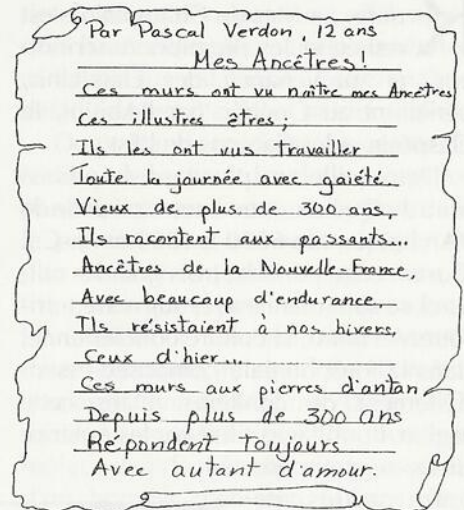 Par Pascal Verdon, 12 ans
Mes Ancêtres!
Ces murs ont vu naître mes Ancêtres
Ces illustres êtres,
Ils les ont vus travailler
Toute la journée avec gaiété.
Vieux de plus de 300 ans,
Ils racontent aux passants...
Ancêtres de la Nouvelle-France,
Avec beaucoup d'endurance.
Ils résistaient à nos hivers,
Ceux d'hier...
Ces murs aux pierres d'antan
Depuis plus de 300 ans
Répondent toujours
Avec autant d'amour.